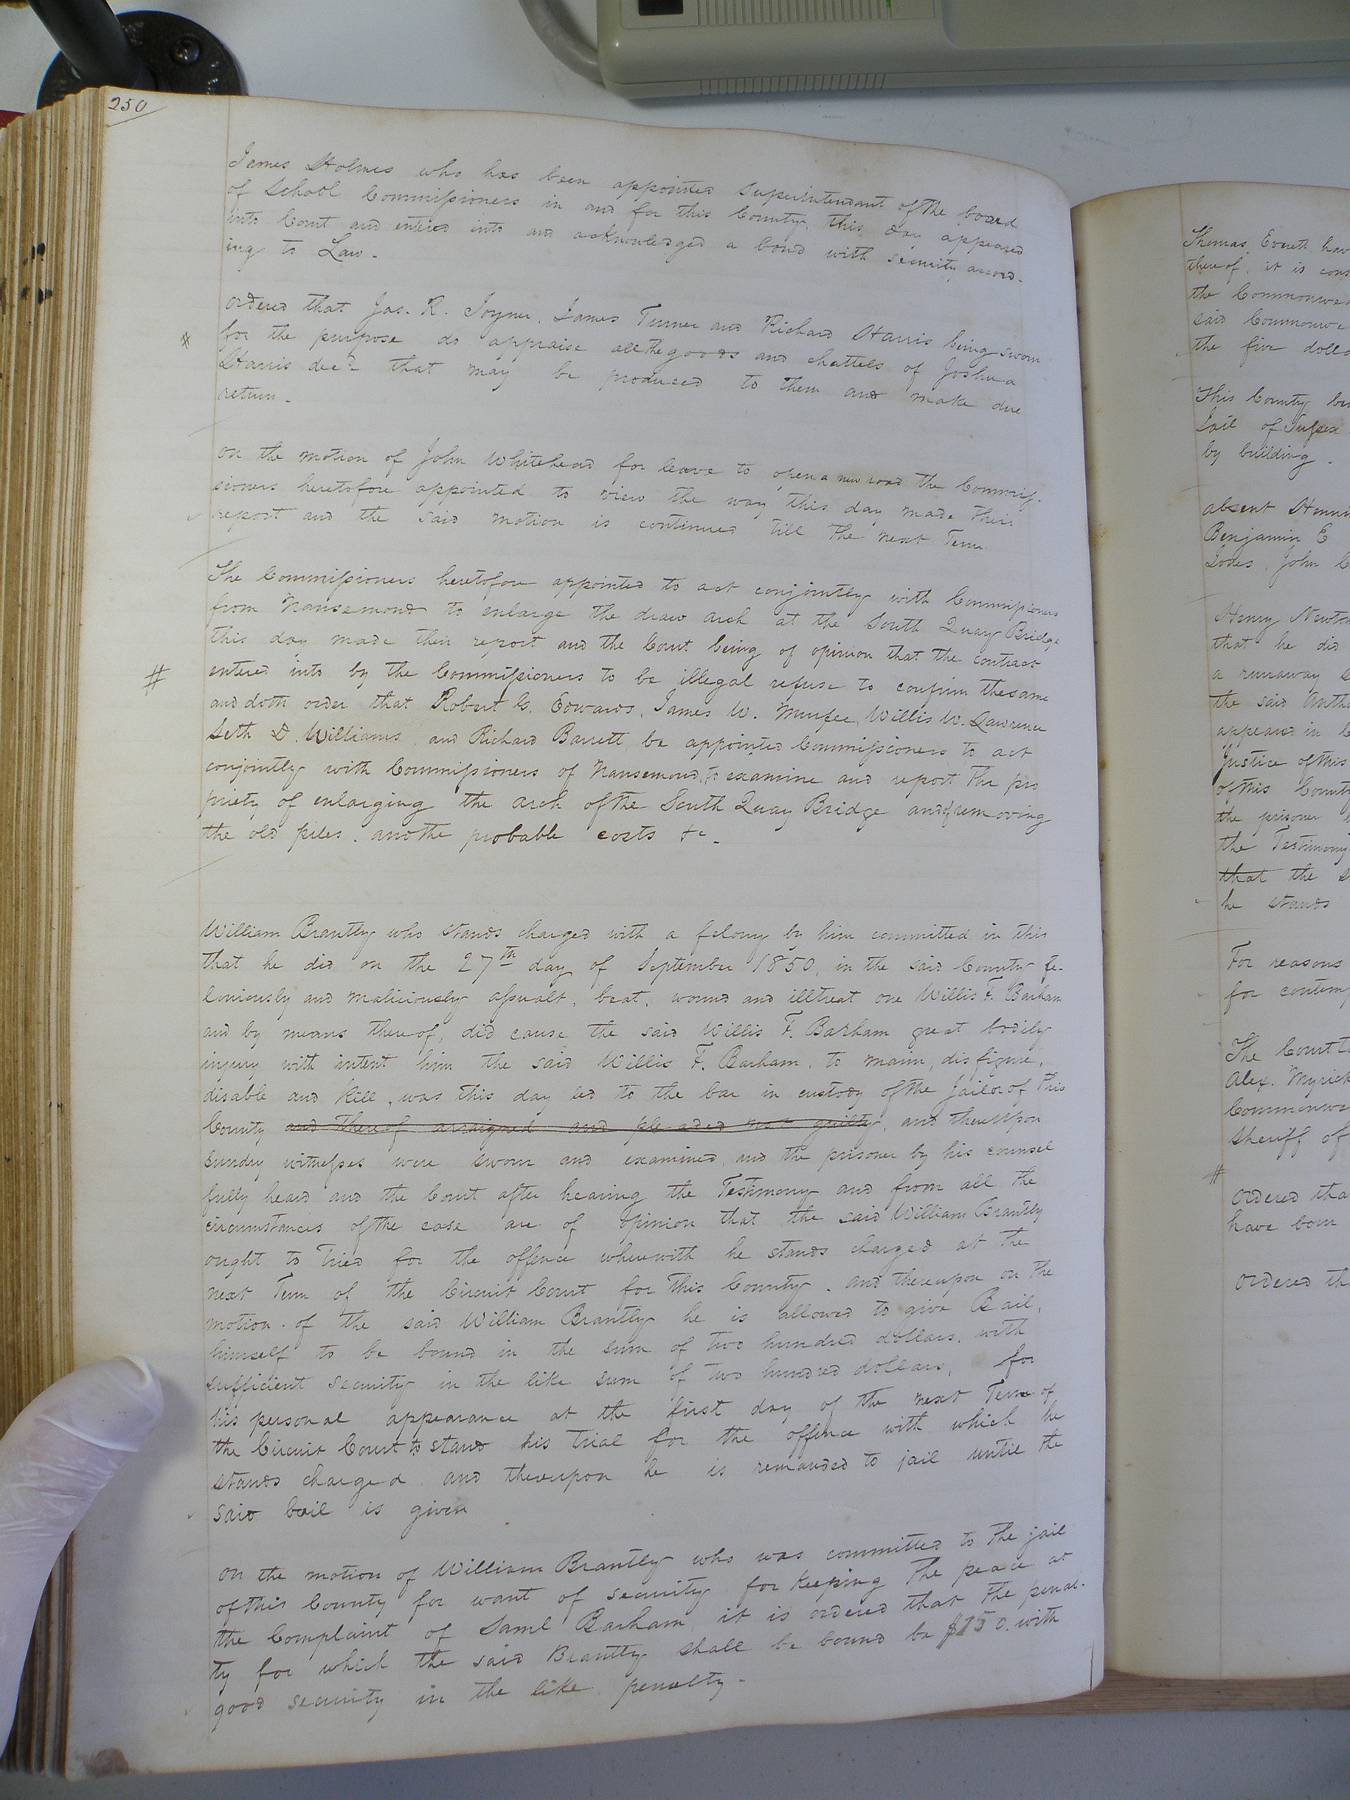 250
James Holmes who has been appointed Superintendant of the board
of School Commissioners in and for this County, this day appeared
into Court and entered into and acknowledged a bond with security accord-
ing to Law.
ordered that Jas. R. Joyner, James Turner and Richard Harris being sworn
for the purpose do appraise all the goods and chattels of Joshua
Harris decd. that may be produced to them and make due
return.
on the motion of John Whitehead for leave to open a new road the Commis-
sioners heretofore appointed to view the way this day made their
report and the said motion is continued till the next Term
The Commissioners heretofore appointed to act conjointly with Commissioners
from Nansemond to enlarge the draw arch at the South Quay Bridge
this day made their report and the Court being of opinion that the contract
entered into by the Commissioners to be illegal refuse to confirm the same
and doth order that Robert G. Edwards, James W. Murfee, Willis W. Lawrence
Seth D. Williams and Richard Barrett, be appointed Commissioners to act
conjointly with Commissioners of Nansemond, to examine and report the pro
priety of enlarging the arch of the South Quay Bridge and of removing
the old piles, and the probable costs &c.
William Brantley who stands charged with a felony by him committed in this
that he did on the 27th day of September 1850, in the said County fe-
loniously and maliciously assualt, beat, wound and illtreat one Willis F. Barham
and by means thereof, did cause the said Willis F. Barham great bodily
injury with intent him the said Willis F. Barham, to maim, disfigure,
disable and kill, was this day led to the bar in custody of the Jailor of this
County and thereof arraigned and pleaded not guilty, and thereupon
sundry witnesses were sworn and examined, and the prisoner by his counsel
fully heard and the Court after hearing the Testimony and from all the
circumstances of the case are of opinion that the said William Brantley
ought to tried for the offence wherewith he stands charged at the
next Term of the Circuit Court for this County. and thereupon on the
motion of the said William Brantley he is allowed to give Bail,
himself to be bound in the sum of two hundred dollars, with
sufficient security in the like sum of two hundred dollars, for
his personal appearance at the first day of the next Term of
the Circuit Court to stand his trial for the offence with which he
stands charged and thereupon he is remanded to jail until the
said bail is given
on the motion of William Brantley who was committed to the jail
of this County for want of security for keeping the peace at
the Complaint of Saml Barham it is ordered that the penal-
ty for which the said Brantley shall be bound be $150. with
good security in the like penalty.
Thomas Everett hav
thereof, it is cons
the Commonwea
said Commonwe
the five dolla
This County be
Jail of Sussex
by building.
absent Henn
Benjamin E
John C
Henry Newto
that he did
a runaway
the said Anth
appeared in C
Justice of this
of this County
the prisoner
the Testimony
that the s
he stands
For reasons
for contemp
The Court
Alex. Myrick
Commonwe
Sheriff of
ordered tha
have been
ordered tha